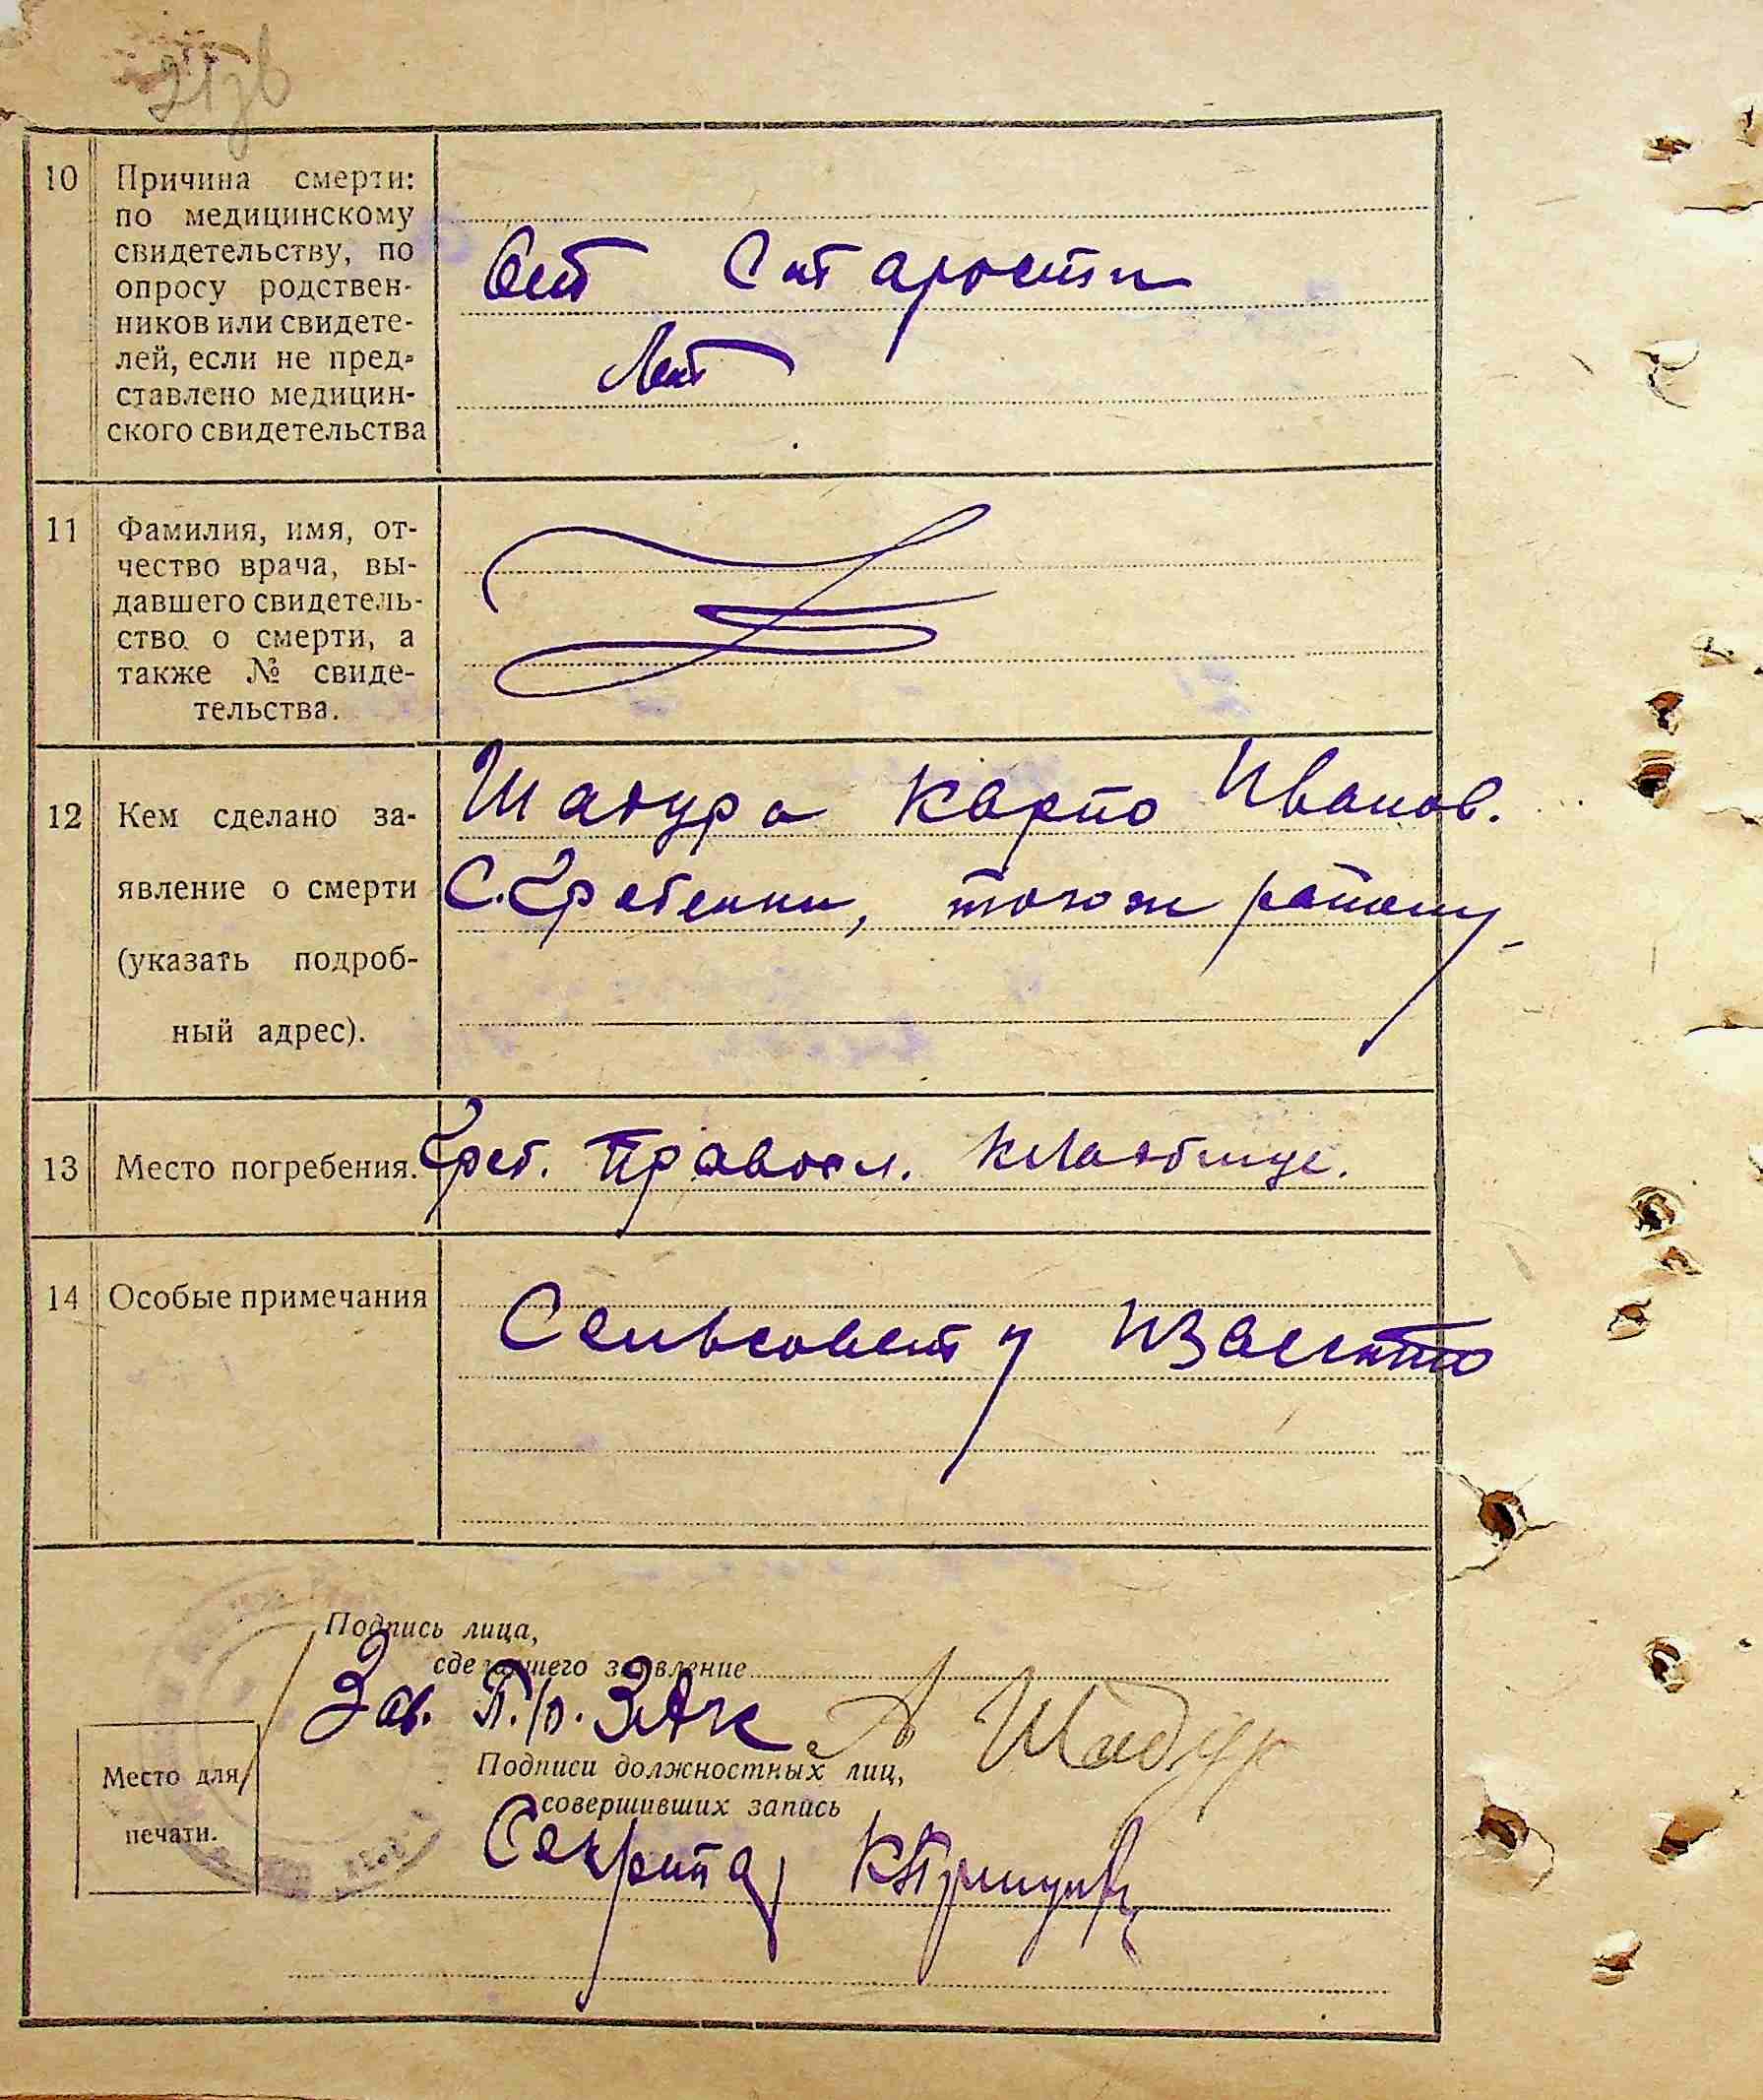 10 Причина смерти:
по медицинскому
свидетельству, по
опросу родствен-
ников или свидете-
лей, если не пред-
ставлено медицин-
ского свидетельства
От Старости
Лет
11 Фамилия, имя, от-
чество врача, вы-
давшего свидетель-
ство о смерти, а
также № свиде-
тельства.
12 Кем сделано за-
явление о смерти
(указать подроб-
ный адрес).
Шадура Карпо Иванов.
С. Гребенки, тогож району
13 Место погребения.
Греб. Правосл. Кладбище.
14 Особые примечания
Сельсовету Известно
Подпись лица,
сделавшего заявление
Зав. П./о. ЗАК А Шадур
Подписи должностных лиц,
совершивших запись
Место для
печати.
Секретар